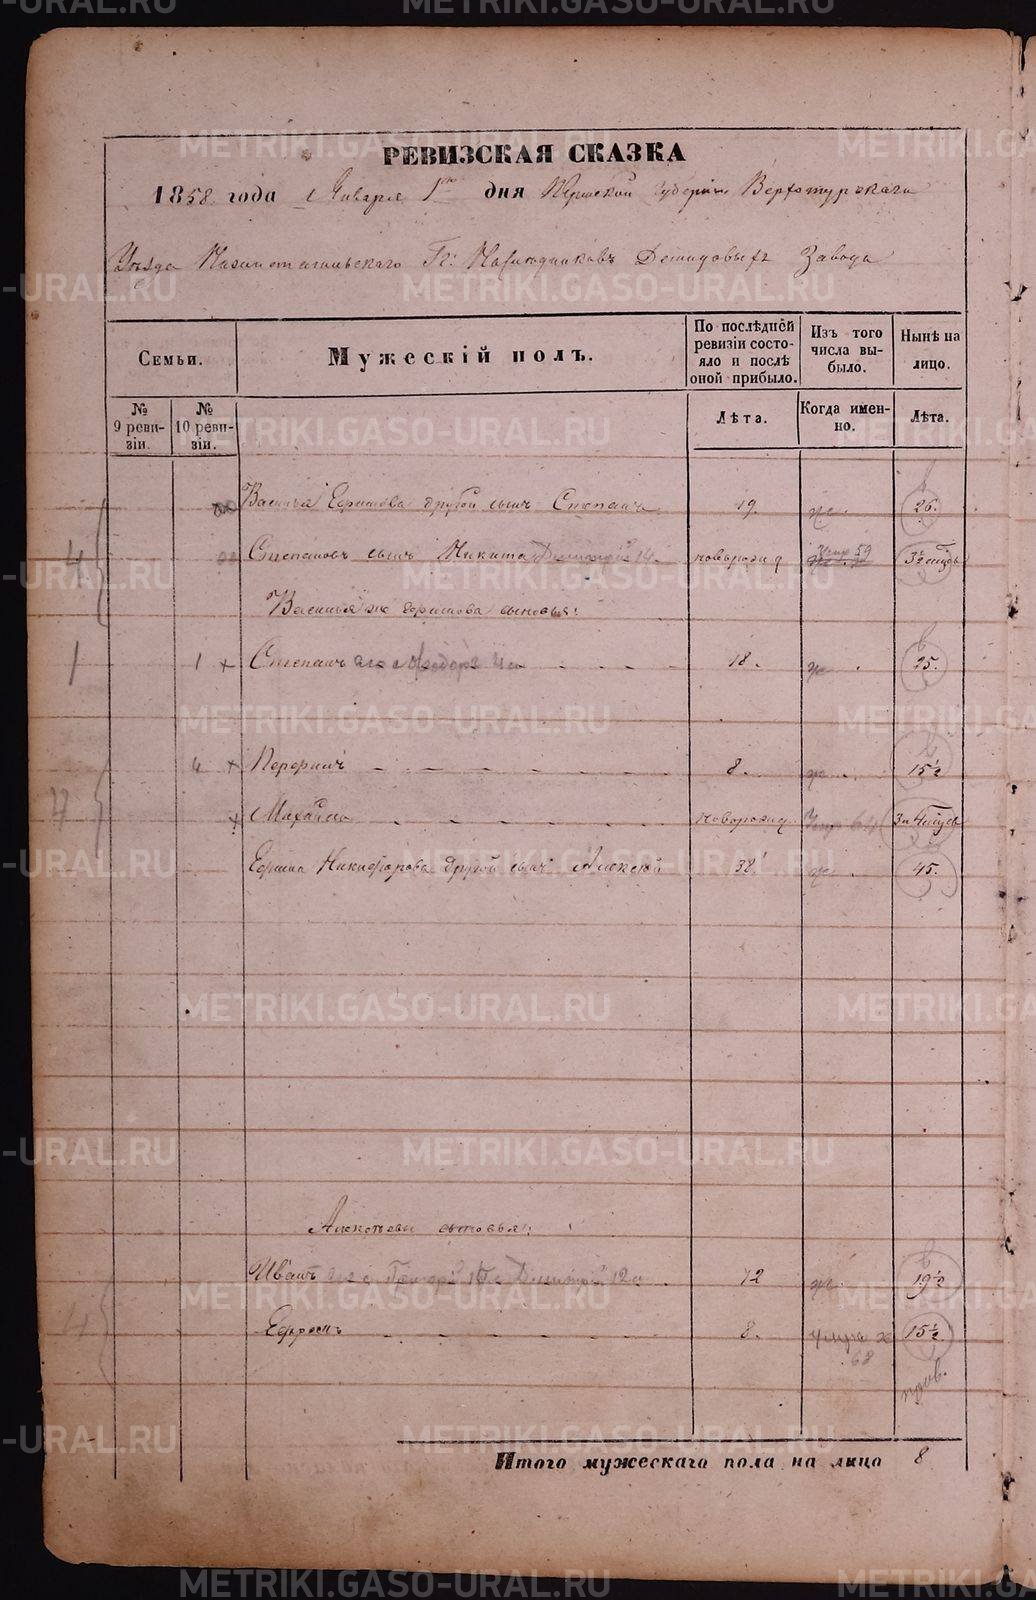 РЕВИЗСКАЯ СКАЗКА
1858 года Января 1го дня Пермской губернии Верхотурскаго
Уѣзда Нижнетагильскаго Гг: Наслѣдниковъ Демидовыхъ Завода
Семьи.
Мужескій полъ.
По послѣдней ревизіи состояло и послѣ оной прибыло.
Изъ того числа выбыло.
Нынѣ на лицо.
№ 9 ревизіи.
№ 10 ревизіи.
Лѣта.
Когда именно.
Лѣта.
Василья Ефимова другой сынъ Степанъ 19. 26.
4 Степановъ сынъ Никита Дмитрій 14. новорожд 59 3½
Василья же Ефимова сыновья:
1 1 + Степанъ Федоръ 18. 25.
4 4 + Перфилъ 8. 15½
+ Михайло новорожд. 64
Ефима Никифорова другой сынъ Алексей 38 45.
Алексѣевы сыновья:
Иванъ Григорій Дмитрій 12 12 19½
4 Ефремъ 8. 68 15½
Итого мужескаго пола на лицо 8
METRIKI.GASO-URAL.RU